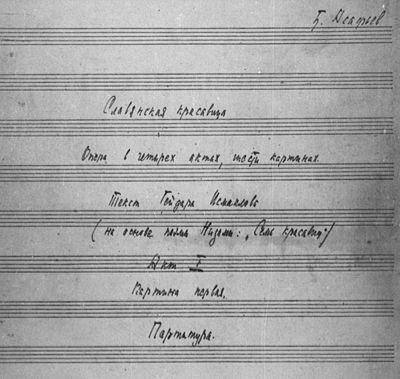 Б. Асафьев
Славянская красавица
Опера в четырех актах, шести картинах.
Текст Гейдара Исмаилова
(на основе поэмы Низами: „Семь красавиц“)
Акт I
Картина первая.
Партитура.